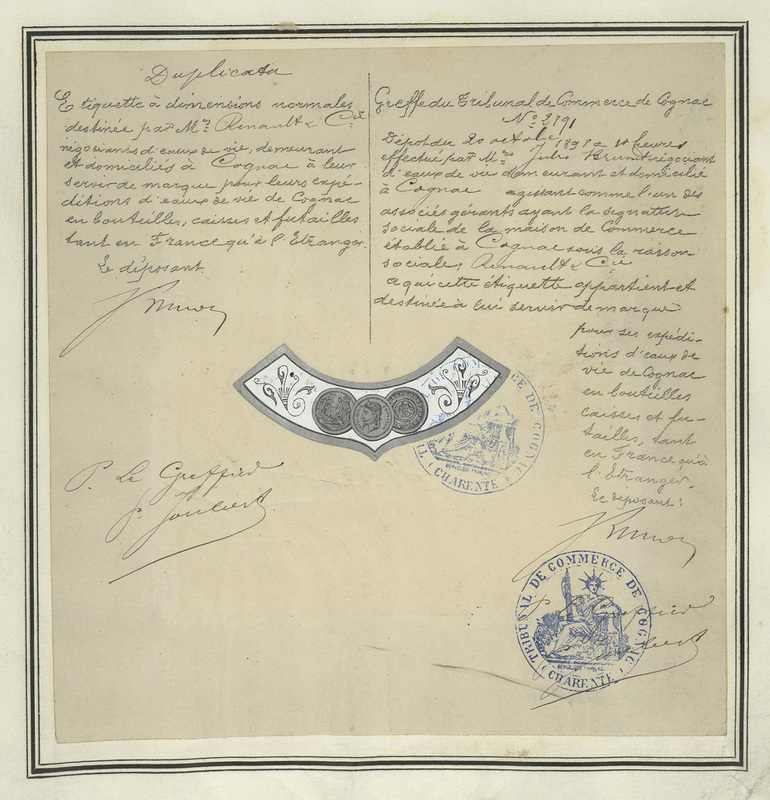 Duplicata
Etiquette à dimensions normales
destinée par Mrs Renault & Cie
négociants d'eaux de vie, demeurant
et domiciliés à Cognac à leur
servir de marque pour leurs expé-
ditions d'eaux de vie de Cognac
en bouteilles, caisses et futailles
tant en France qu'à l'Etranger.
Le déposant
P. Le Greffier
P. Joubert
Greffe du Tribunal de Commerce de Cognac
No 2191
Dépôt du 20 octobre 1891 à heures
effectué par Mr Jules négociant
d'eaux de vie demeurant et domicilié
à Cognac agissant comme l'un des
associés gérants ayant la signature
sociale de la maison de Commerce
établie à Cognac sous la raison
sociale, Renault & Cie
a qui cette étiquette appartient et
destinée à lui servir de marque
pour ses expédi-
tions d'eaux de
vie de Cognac
en bouteilles
caisses et fu-
tailles, tant
en France qu'à
l'Etranger.
Le déposant
DE COGNAC
CHARENTE
TRIBUNAL DE COMMERCE DE COGNAC
CHARENTE
P. Le Greffier
P. Joubert